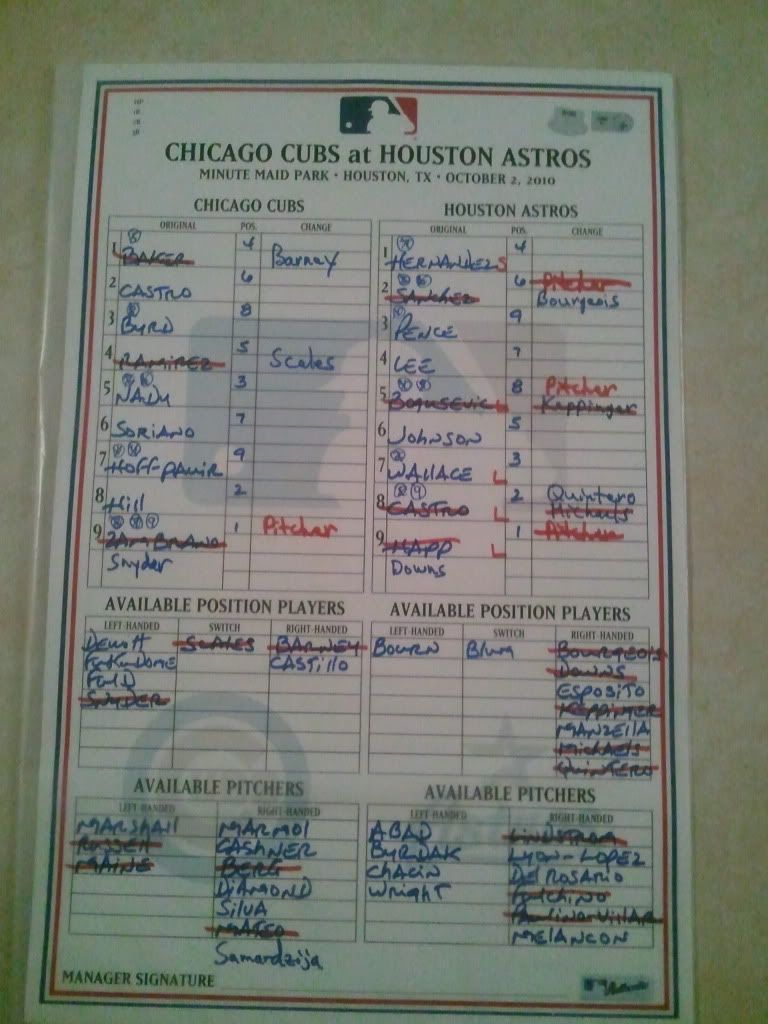 HP
1B
2B
3B
CHICAGO CUBS at HOUSTON ASTROS
MINUTE MAID PARK • HOUSTON, TX • OCTOBER 2, 2010
CHICAGO CUBS
ORIGINAL POS. CHANGE
1 BAKER 4 Barney
2 CASTRO 6
3 BYRD 8
4 RAMIREZ 5 Scales
5 NADY 3
6 SORIANO 7
7 HOFFPAUIR 9
8 Hill 2
9 ZAMBRANO 1 Pitcher
Snyder
HOUSTON ASTROS
ORIGINAL POS. CHANGE
1 HERNANDEZ S 4
2 SANCHEZ 6 Pitcher
Bourgeois
3 PENCE 9
4 LEE 7
5 BOGUSEVIC L 8 Pitcher
Keppinger
6 JOHNSON 5
7 WALLACE L 3
8 CASTRO L 2 Quintero
Michaels
9 HAPP L 1 Pitcher
Downs
AVAILABLE POSITION PLAYERS
LEFT-HANDED SWITCH RIGHT-HANDED
DeWitt SCALES BARNEY
FUKUDOME CASTILLO
FULD
SNYDER
AVAILABLE POSITION PLAYERS
LEFT-HANDED SWITCH RIGHT-HANDED
BOURN Blum BOURGEOIS
DOWNS
ESPOSITO
KEPPINGER
MANZELLA
Michaels
QUINTERO
AVAILABLE PITCHERS
LEFT-HANDED RIGHT-HANDED
MARSHALL MARMOL
RUSSELL CASHNER
MAINE BERG
DIAMOND
SILVA
MATEO
Samardzija
AVAILABLE PITCHERS
LEFT-HANDED RIGHT-HANDED
ABAD LINDSTROM
BYRDAK LYON-LOPEZ
CHACIN Del ROSARIO
Wright Fulchino
Paulino-Villar
MELANCON
MANAGER SIGNATURE